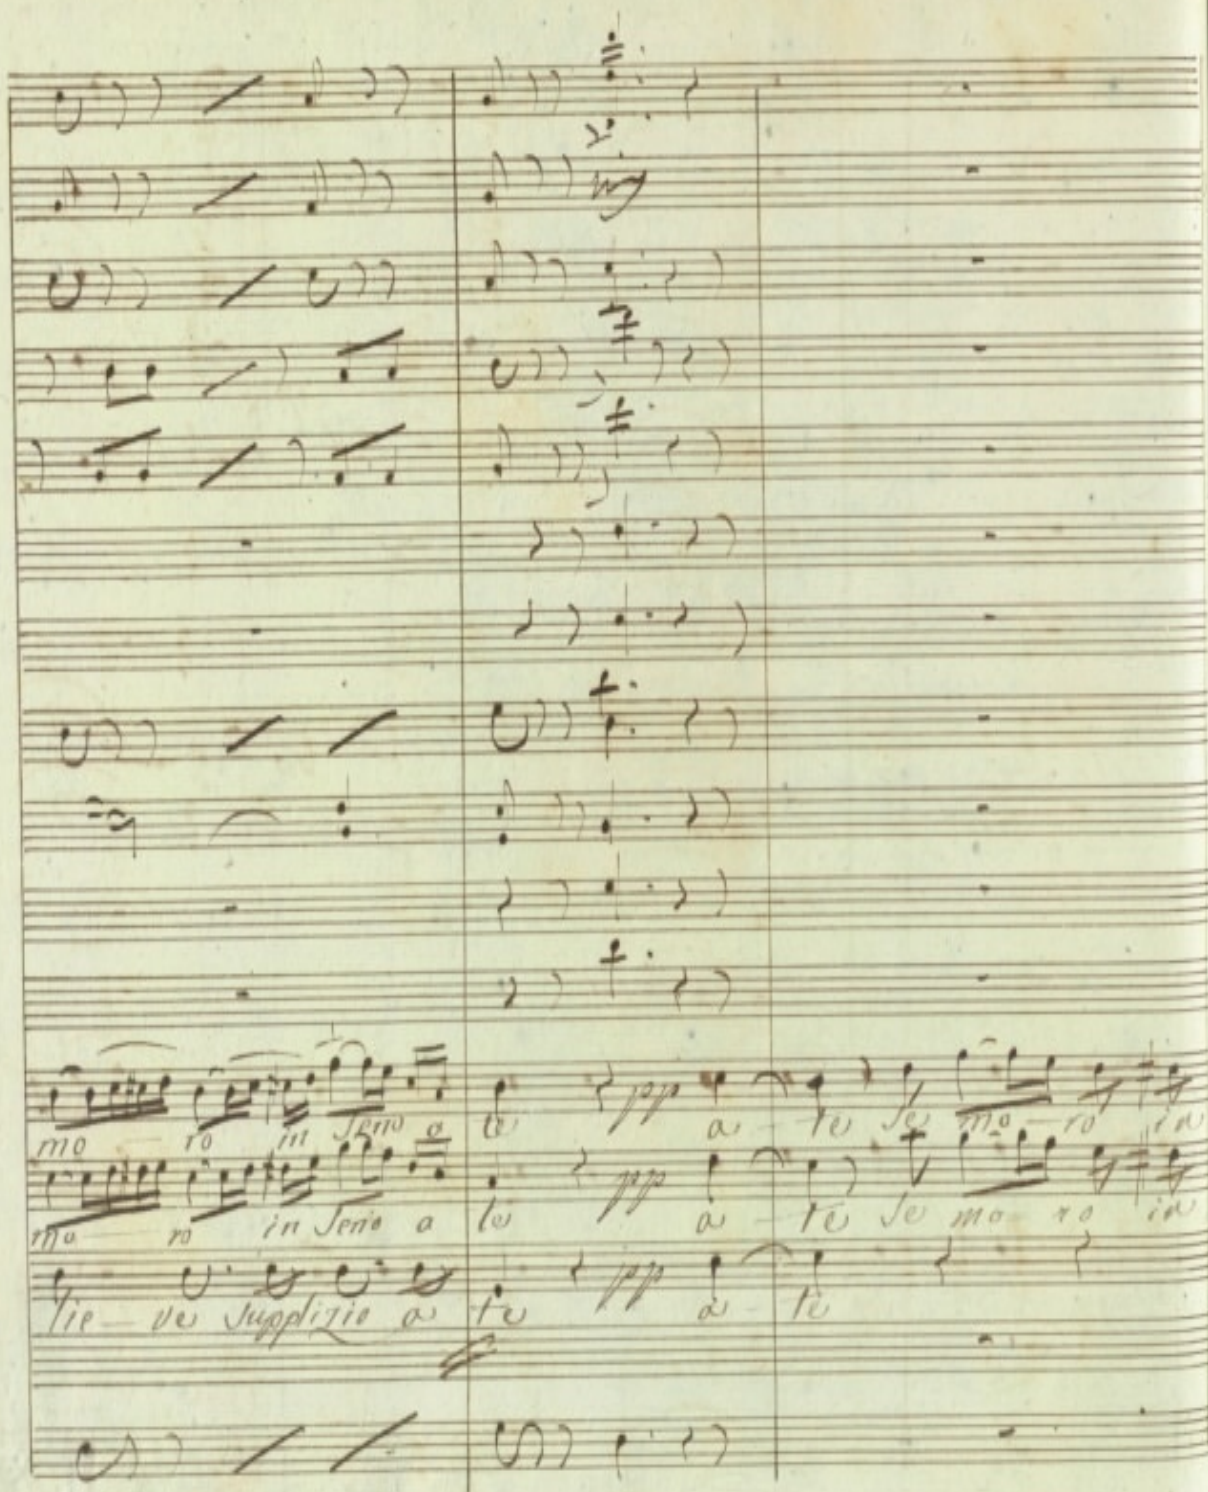 mo ro in Seno a te pp a te Se mo ro in
mo ro in Seno a te pp a te Se mo ro in
lie ve Supplizio a te pp a te